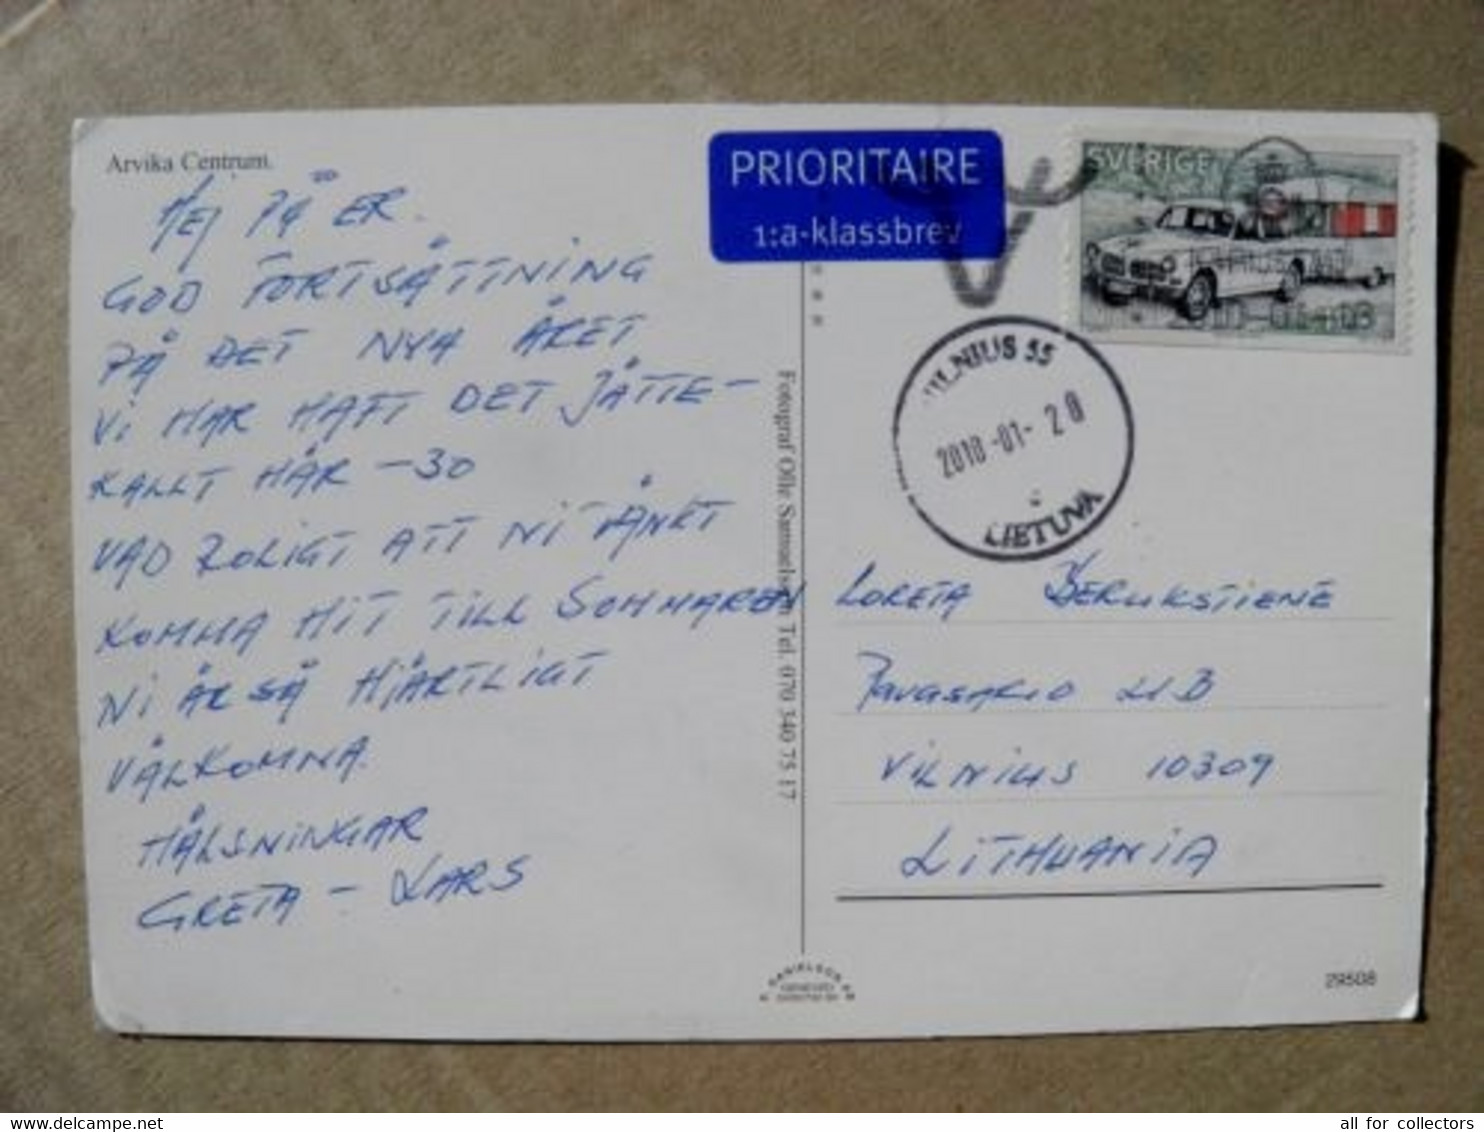 Arvika Centrum.
HEJ PÅ ER.
GOD FORTSÄTTNING
PÅ DET NYA ÅRET
VI HAR HAFT DET JÄTTE-
KALLT HÄR -30
VAD ROLIGT ATT NI TÄNKT
KOMMA HIT TILL SOMMAREN
NI ÄR SÅ HJÄRTLIGT
VÄLKOMNA.
HÄLSNINGAR
GRETA - LARS
PRIORITAIRE
1:a-klassbrev
SVERIGE
VILNIUS 55
2010-01-20
LIETUVA
Fotograf Olle Samuelson Tel. 070 340 75 17
LORETA BERUKSTIENE
PAVASARIO 21B
VILNIUS 10309
LITHUANIA
29508
all for collectors